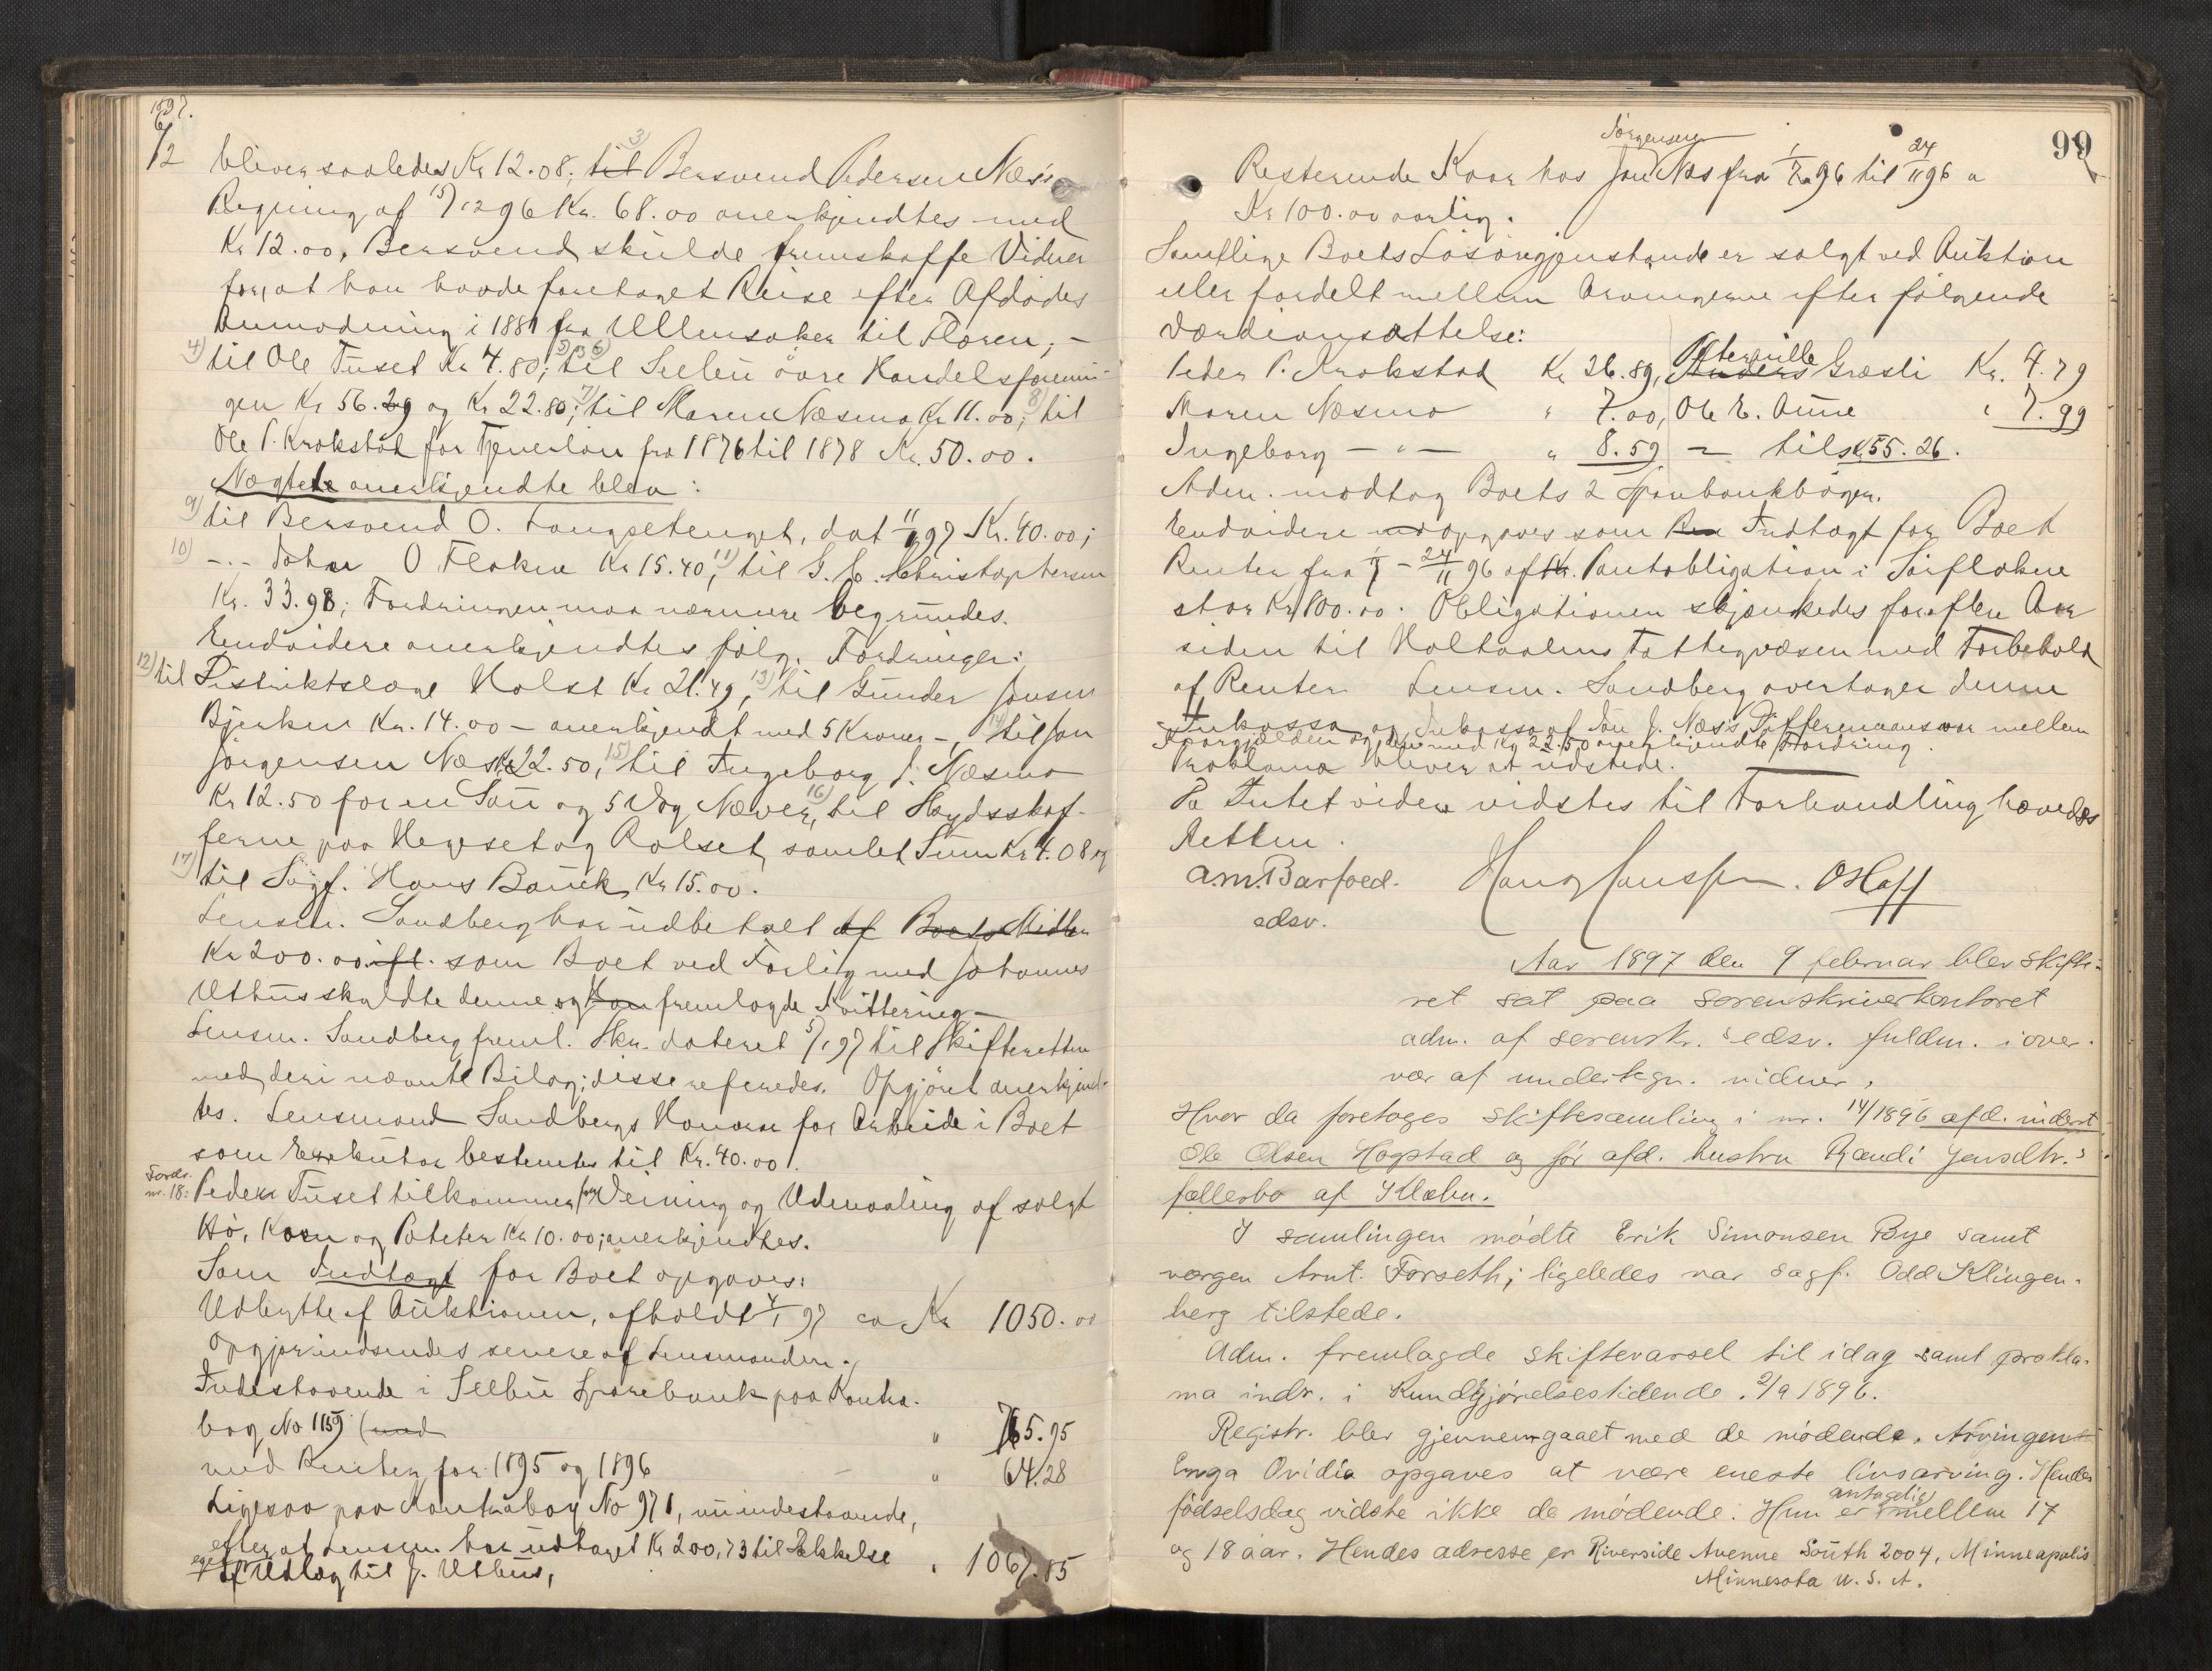 1897.
6/2 bliver saaledes Kr 12.08; 3) til Bersvend Pedersen Næss
Regning af 15/12 96 Kr. 68.00 anerkjendtes med
Kr 12.00, Bersvend skulde fremskaffe Vidner
for, at han havde foretaget Reise efter Afdødes
Anmodning i 1881 fra Ullensaker til Floren; -
4) til Ole Tuset Kr 4.80; 5) & 6) til Selbu øvre Handelsforenin-
gen Kr 56.29 og Kr 22.80; 7) til Maren Næsmo Kr 11.00; 8) til
Ole P. Krokstad for Tjenerløn fra 1876 til 1878 Kr. 50.00.
Nægtede anerkjendte blev:
9) til Bersvend O. Langseth, dat 11/1 97 Kr. 40.00;
10) -"- Johan O Floken Kr 15.40, 11) til G. C. Christophersen
Kr. 33.98; Fordringen maa nærmere begrundes.
Endvidere anerkjendtes følg. Fordringer:
12) til Distriktslæge Holst Kr 21.49, 13) til Gunder Jonsen
Bjerken Kr. 14.00 - anerkjendt med 5 Kroner -, 14) til Jon
Jørgensen Næs Kr 22.50, 15) til Ingeborg J. Næsmo
Kr 12.50 for en Sau og 5 Vog Næver, 16) til Skydsskaf-
ferne paa Hegset og Rolset, samlet Sum Kr 4.08 og
17) til Sagf. Hans Bauck, Kr 15.00.
Lensm. Sandberg har udbetalt af Boets Midler
Kr 200.00 ifl. som Boet ved Forlig med Johannes
Uthus skyldte denne og han fremlagde Kvittering -
Lensm. Sandberg freml. Skr. dateret 5/2 97 til Skifteretten
med deri nævnte Bilag; disse refereredes. Opgjøret anerkjend-
tes. Lensmand Sandbergs Honorar for Arbeide i Boet
som Exekutor bestemtes til Kr. 40.00.
Fordr.
nr. 18: Peder Tuset tilkommer for Veining og Udmaaling af solgt
Hø, Korn og Poteter Kr 10.00; anerkjendtes.
Som Indtægt for Boet opgaves:
Udbytte af Auktionen, afholdt 4/1 97 ca Kr 1050.00
Opgjør indsendes senere af Lensmanden.
Indestaaende i Selbu Sparebank paa Kontra-
bog No 1159 (med " 765.95
med Renter for 1895 og 1896 - " 64.28
Ligesaa paa Kontrabog No 971, nu indestaaende,
efter at Lensm. har udtaget Kr 200,73 til Dækkelse
af eget Udlæg til J. Uthus, " 1067.85
99
Resterende Kaar hos Jon Jørgensen Næs fra 1/7 96 til 24/11 96 a
Kr 100.00 aarlig.
Samtlige Boets Løsøregjenstande er solgt ved Auktion
eller fordelt mellem Arvingerne efter følgende
Værdiansættelse:
Peder P. Krokstad Kr 26.89, Anders Græsli Kr. 4.79
Maren Næsmo " 7.00, Ole E. Aune " 7.99
Ingeborg - " - " 8.59 - tils. Kr 55.26.
Adm. modtog Boets 2 Sparebankbøger.
Endvidere opgaves som Indtægt for Boet
Renter fra - 24/11 96 af Kr. Pantobligation i Sørflokne
stor Kr 800.00. Obligationen skjænkedes for flere Aar
siden til Holtaalens Fattigvæsen med Forbehold
af Renter. Lensm. Sandberg overtager denne
Inkasso og Inkasso af Jon J. Næs's Differenceansvar mellem
Kaargjælden og den med Kr 22.50 anerkjendte Fordring.
Proklama bliver at udstede.
Da Intet videre vidstes til Forhandling hævedes
Retten.
A.M. Barfoed. Hans Hanssen. O Hoff
edsv.
Aar 1897 den 9 februar blev skifte-
ret sat paa sorenskriverkontoret
adm. af sorenskr.s edsv. fuldm. i over-
vær af undertegn. vidner.
Hvor da foretoges skiftesamling i nr. 14/1896 afd. inderst
Ole Olsen Hogstad og før afd. hustru Randi Jensdtr.s
fællesbo af Klæbu.
I samlingen mødte Erik Simonsen Bye samt
værgen Arnt. Forseth; ligeledes var sagf. Odd Klingen-
berg tilstede.
Adm. fremlagde skiftevarsel til idag samt prokla-
ma indr. i Kundgjørelsestidende 2/9 1896.
Registr. blev gjennemgaaet med de mødende. Arvingen
Enga Ovidia opgaves at være eneste livsarving. Hendes
fødselsdag vidste ikke de mødende. Hun er antagelig mellem 17
og 18 aar. Hendes adresse er Riverside Avenue South 2004, Minneapolis
Minnesota U.S.A.